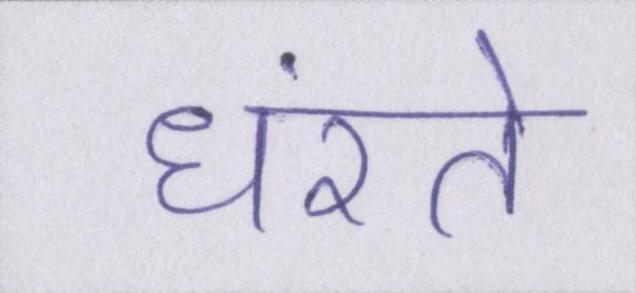 धंरते